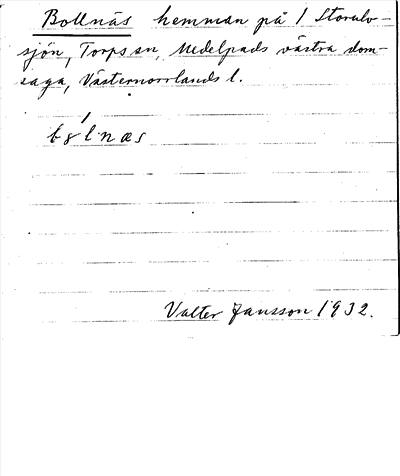 Bollnäs hemman på 1 Storulv-
sjön, Torps sn, Medelpads västra dom-
saga, Västernorrlands l.
Valter Jansson 1932.